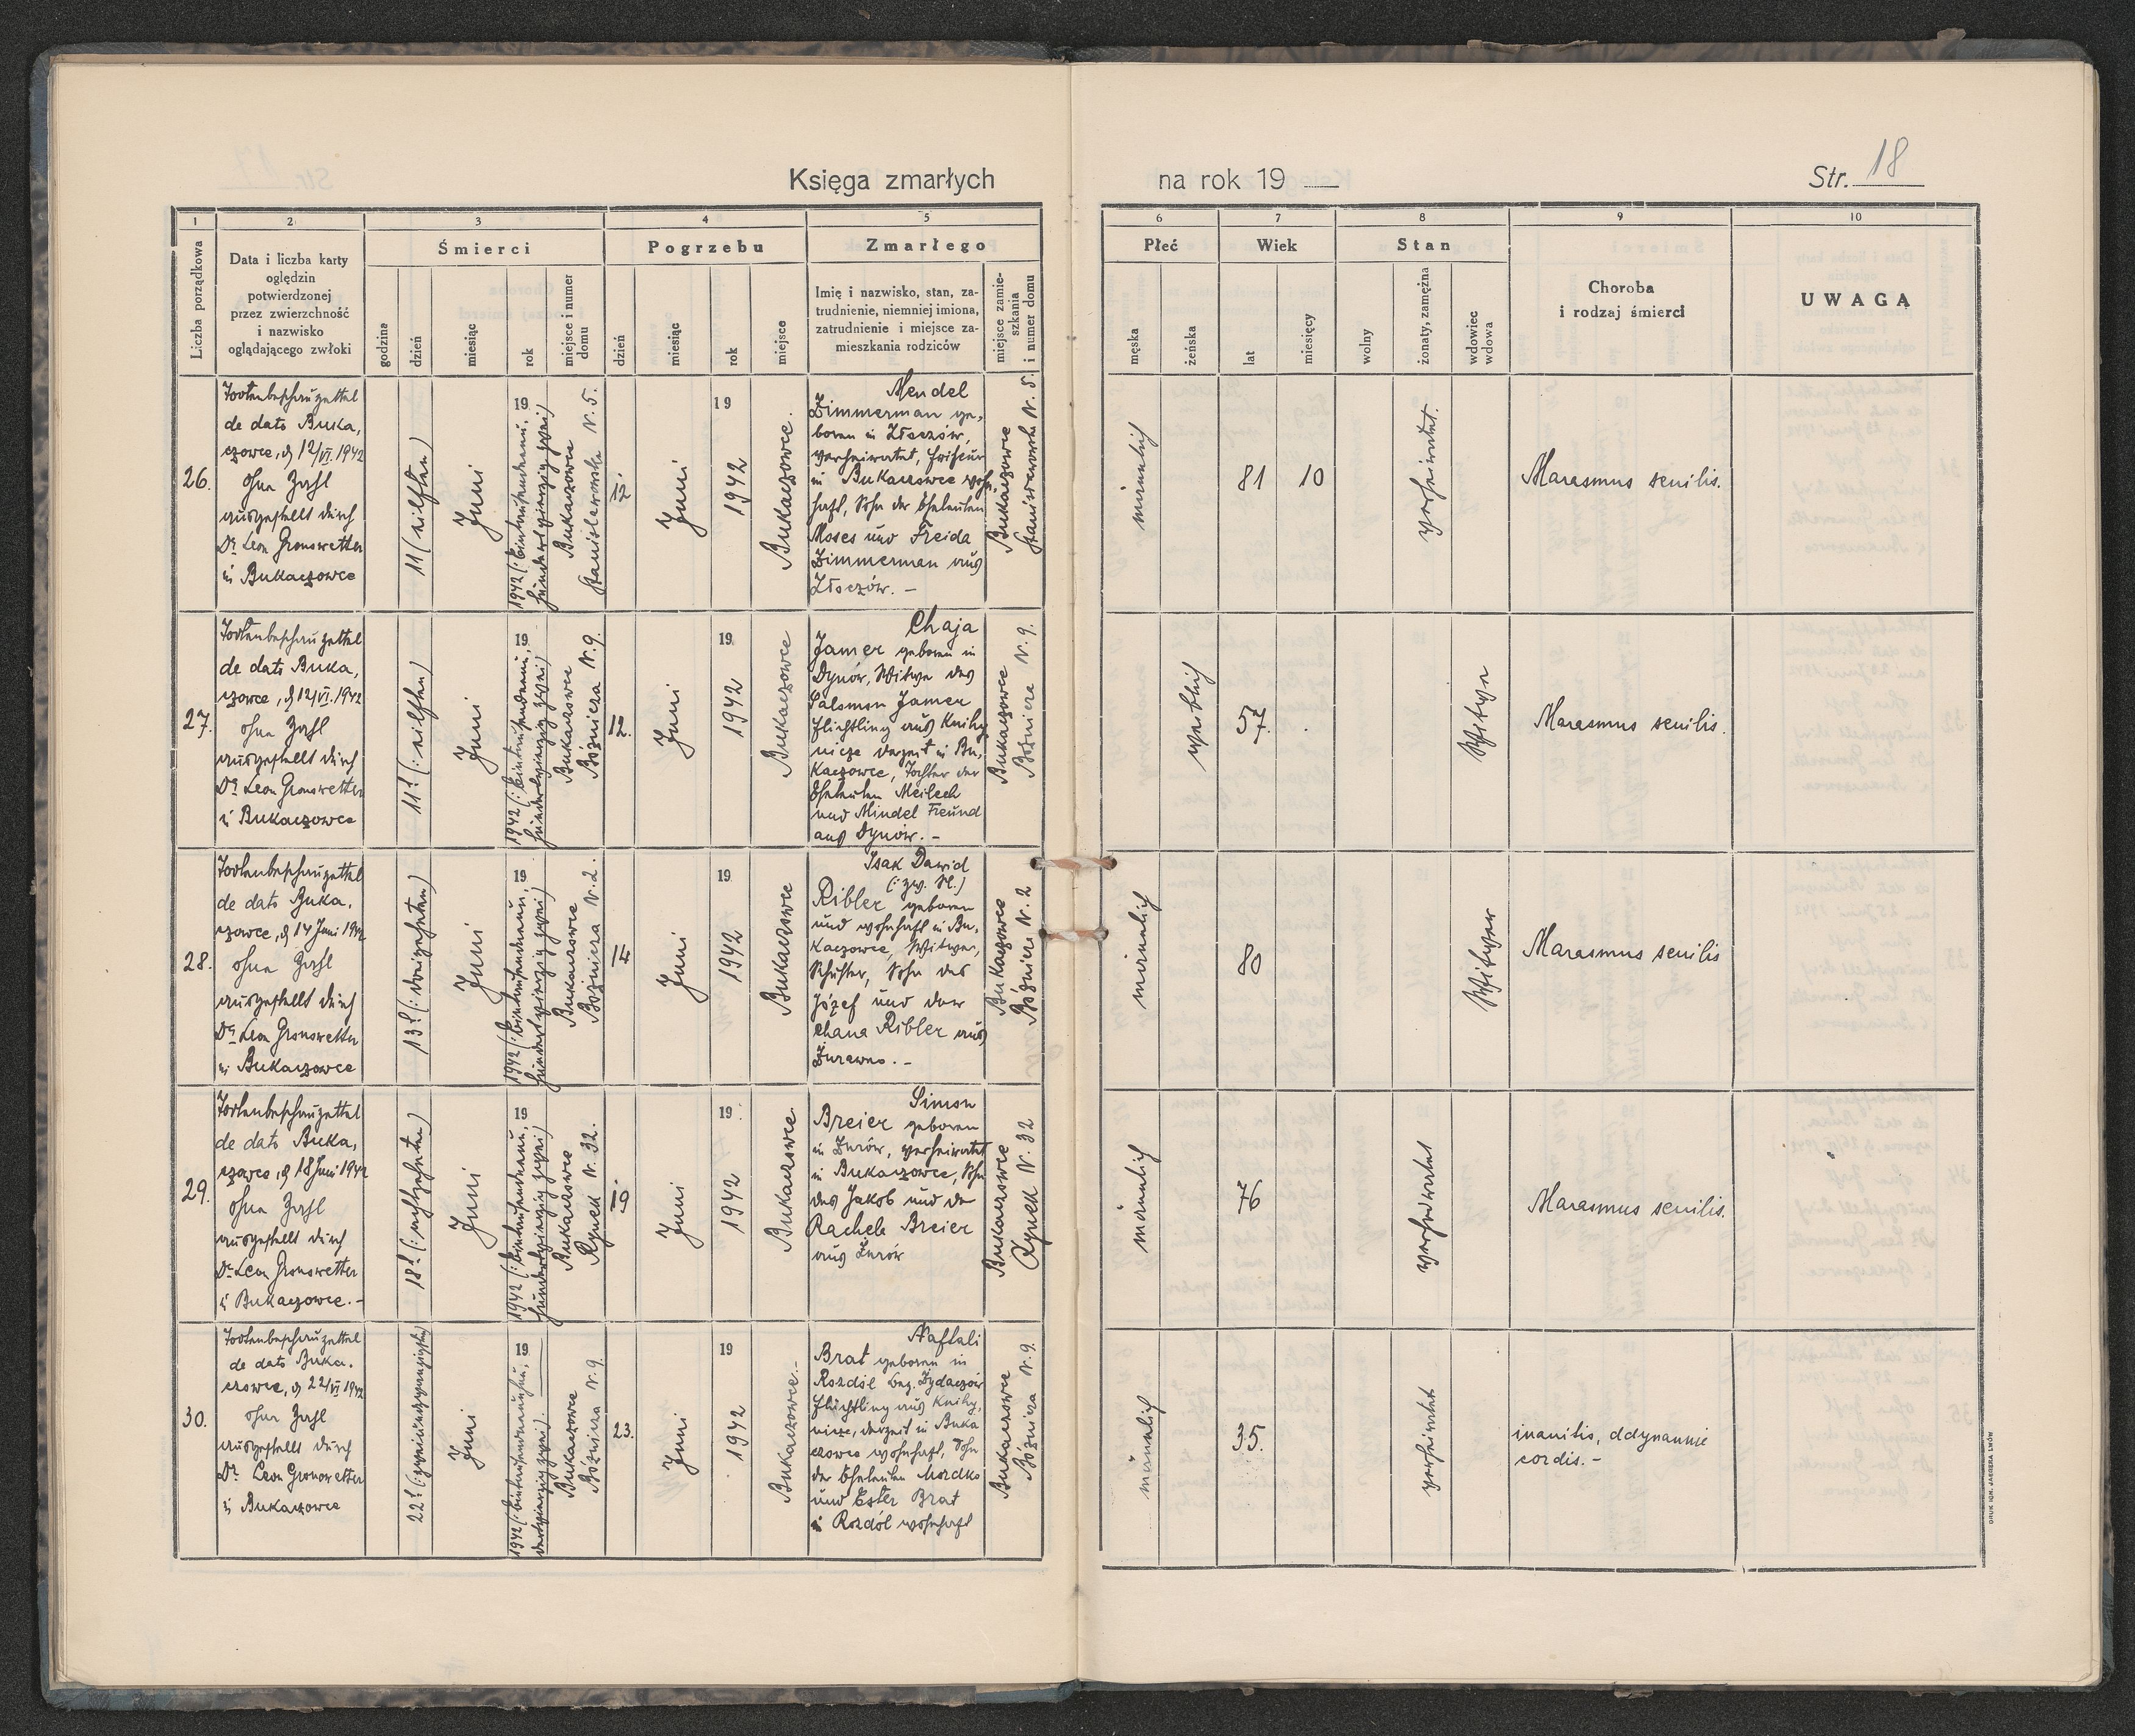 Księga zmarłych na rok 19 —
Str. 18
1 2 3 4 5 6 7 8 9 10
Liczba porządkowa
Data i liczba karty
oględzin
potwierdzonej
przez zwierzchność
i nazwisko
oglądającego zwłoki
Śmierci
godzina
dzień
miesiąc
rok
miejsce i numer
domu
Pogrzebu
dzień
miesiąc
rok
miejsce
Zmarłego
Imię i nazwisko, stan, za-
trudnienie, niemniej imiona,
zatrudnienie i miejsce za-
mieszkania rodziców
miejsce zamie-
szkania
i numer domu
Płeć
męska
żeńska
Wiek
lat
miesięcy
Stan
wolny
żonaty, zamężna
wdowiec
wdowa
Choroba
i rodzaj śmierci
UWAGA
26.
Todtenbeschauzettel
de dato Buka,
czowce, d 12/VI.1942
ohne Zahl
ausgestellt durch
Dr Leon Gronowetter
in Bukaczowce
11 (eilften)
Juni
19
1942 (: Eintausendneun,
hundertvierzig zwei)
Bukaczowce
Stanisławowska N. 5.
12
Juni
19
1942
Bukaczowce.
Mendel
Zimmerman ge,
boren in Złoczów,
verheiratet, Friseur
in Bukaczowce wohn,
haft, Sohn der Eheleuten
Moses und Freida
Zimmerman aus
Złoczów. –
Bukaczowce
Stanisławowska N. 5.
männlich
81
10
verheiratet.
Marasmus senilis.
27.
Todtenbeschauzettel
de dato Buka,
czowce, d 12/VI.1942
ohne Zahl
ausgestellt durch
Dr Leon Gronowetter
in Bukaczowce
11 (: eilften)
Juni
19
1942 (: Eintausendneun,
hundertvierzig zwei)
Bukaczowce
Bóżnicza N. 9.
12.
Juni
19
1942
Bukaczowce
Chaja
Jamer geboren in
Dynów, Witwe des
Salomon Jamer
Flichtling aus Knihy,
nicze derzeit in Bu,
kaczowce, Tochter der
Eheleuten Meilech
und Mindel Freund
aus Dynów. –
Bukaczowce
Bóżnicza N. 9.
weiblich
57.
Witwe
Marasmus senilis.
28.
Todtenbeschauzettel
de dato Buka,
czowce, d 14 Juni 1942
ohne Zahl
ausgestellt durch
Dr Leon Gronowetter
in Bukaczowce
13 (: dreizehnten)
Juni
19
1942 (: Eintausendneun,
hundertvierzig zwei)
Bukaczowce
Bóżnicza N. 2.
14
Juni
19
1942
Bukaczowce
Isak Dawid
(: zw. N.)
Ribler geboren
und wohnhaft in Bu,
kaczowce, Witwer,
Schuster, Sohn des
Józef und der
Chana Ribler aus
Żurawno. –
Bukaczowce
Bóżnicza N. 2
männlich
80
Witwer
Marasmus senilis
29.
Todtenbeschauzettel
de dato Buka,
czowce, d 18 Juni 1942
ohne Zahl
ausgestellt durch
Dr Leon Gronowetter
in Bukaczowce. –
18 (: achtzehnten)
Juni
19
1942 (: Eintausendneun,
hundertvierzig zwei)
Bukaczowce
Rynek N. 32.
19
Juni
19
1942
Bukaczowce
Simon
Breier geboren
in Żurów, verheiratet
in Bukaczowce, Sohn
des Jakob und der
Rachele Breier
aus Żurów
Bukaczowce
Rynek N. 32
männlich
76
verheiratet
Marasmus senilis.
30.
Todtenbeschauzettel
de dato Buka,
czowce, d 22/VI 1942
ohne Zahl
ausgestellt durch
Dr Leon Gronowetter
in Bukaczowce
22 (: zweiundzwanzigsten)
Juni
19
1942 (: Eintausendneunhun,
dertvierzig zwei).
Bukaczowce
Bóżnicza N. 9.
23.
Juni
19
1942
Bukaczowce. –
Naftali
Brat geboren in
Rozdół bez. Żydaczów
Flüchtling aus Knihy,
nicze, derzeit in Buka
czowce wohnhaft, Sohn
der Eheleuten Mordko
und Ester Brat
in Rozdół wohnhaft
Bukaczowce
Bóżnicza N. 9.
männlich
35.
verheiratet
inanitio, adynamie
cordis. –
DRUK IGN. JAEGERA LWÓW